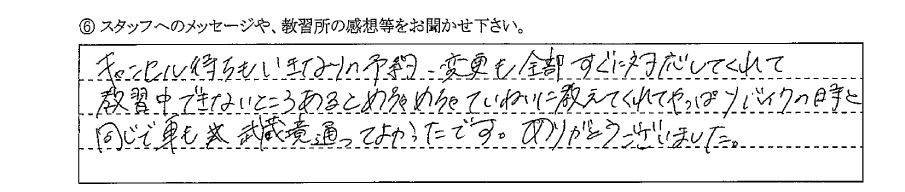 ⑥ スタッフへのメッセージや、教習所の感想等をお聞かせ下さい。
キャンセル待ちもいきなりの予約、変更も全部すぐに対応してくれて
教習中できないところあるとめちゃめちゃていねいに教えてくれてやっぱりバイクの時と
同じで車も武蔵境通ってよかったです。ありがとうございました。